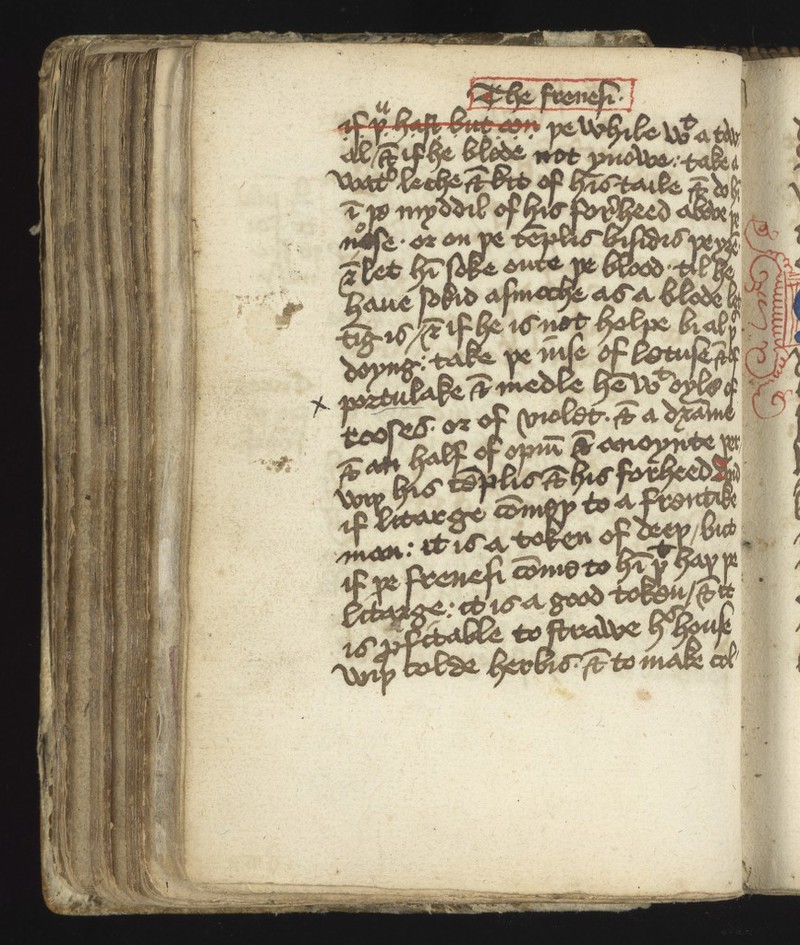 The frenesi.
if þu hast but oon þe while wt a tow
al / & if he blede not ynowe: take a
watˀ leche & kit of his taile & do hī
ī þe myddil of his forˀheed above þe
nose. or on þe tēplis bisidis þe yȝē
& let hī soke oute þe blood. til he
haue sokid asmoche as a blode let
tīg is / & if he is not holpe bi al þͥs
doyng: take þe iuse of letuse & of
portulake & medle hē wt oyle of
rooses. or of violet. & a drāme
& an half of opiū & anoynte þer
wiþ his tēplis & his forheed And
if litarge cōmeþ to a frentike
man: it is a token of deeþ / but
if þe frenesi cōme to hī þt haþ þe
litarge: it is a good token / & it
is ꝓfitable to strawe hͥs house
wiþ colde herbis. & to make col